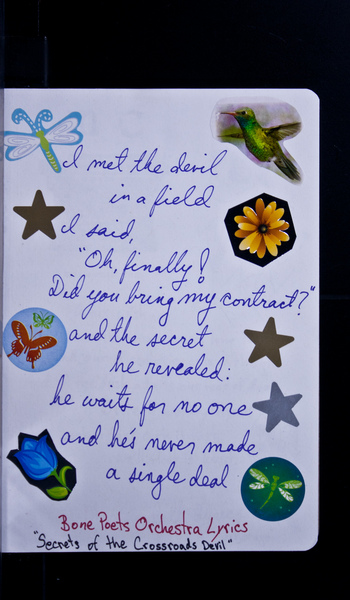 I met the devil
in a field
I said,
"Oh, finally!
Did you bring my contract?"
and the secret
he revealed:
he waits for no one
and he's never made
a single deal
Bone Poets Orchestra Lyrics
"Secrets of the Crossroads Devil"